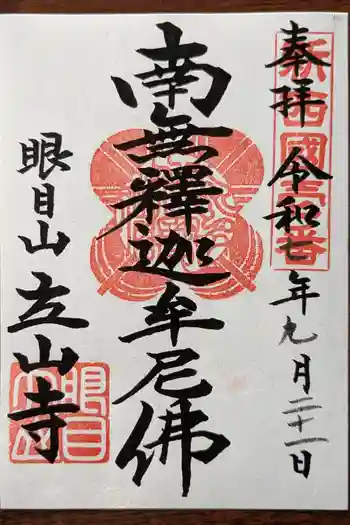 奉拝 令和七年九月二十一日
新西國三番
南無釋迦牟尼佛
眼目山 立山寺